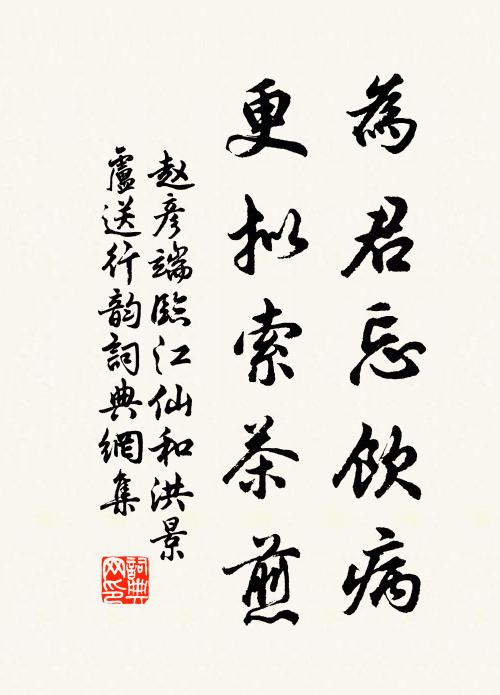 為君忘飲病
更拟索茶煎
赵彦端臨江仙和洪景
盧送行韵詞典網集
詞典
网印